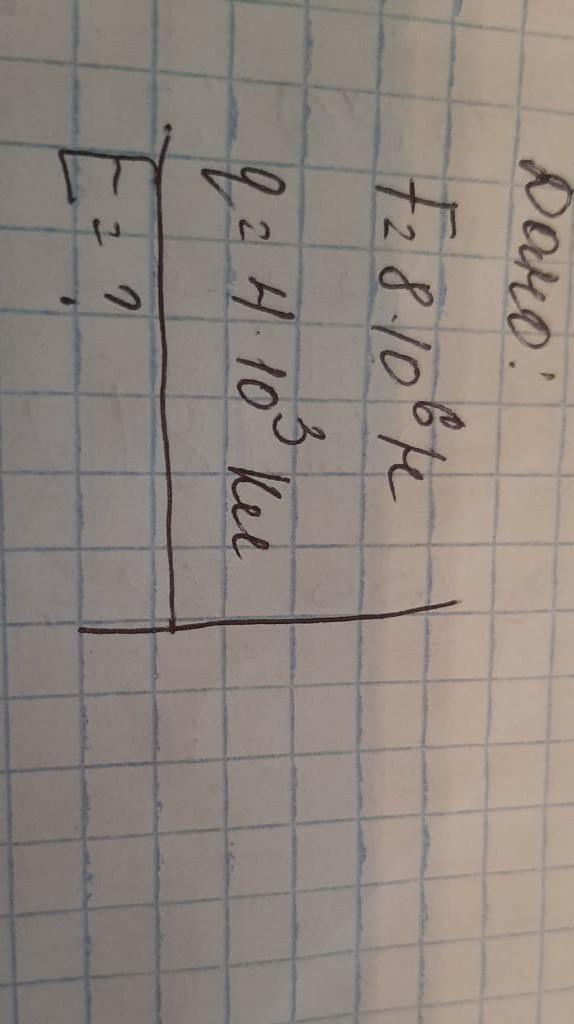 Дано:
F = 8 · 10⁶ Н
q = 4 · 10³ Кл
E = ?